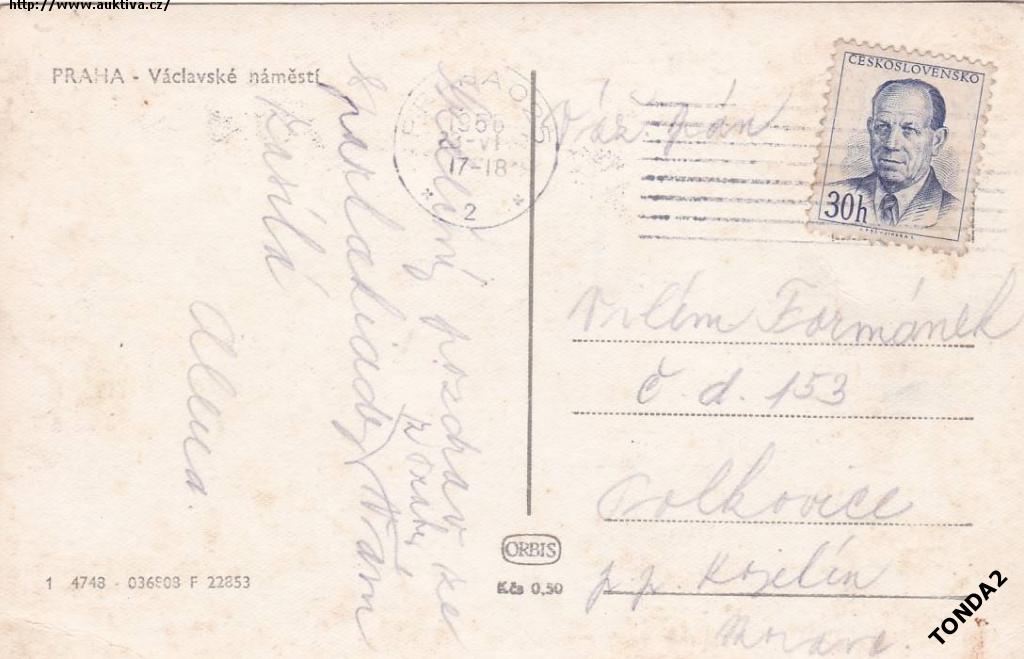 http://www.auktiva.cz/
PRAHA - Václavské náměstí
Srdečný pozdrav ze
spartakiády
z Prahy
Vám
zasílá
Alena.
PRAHA 025
1956
VI
17-18
* 2 *
ČESKOSLOVENSKO
30h
Váž. pán
Vilém Formánek
č. d. 153
Polkovice
p. p. Kojetín
Morava.
ORBIS
Kčs 0,50
1 4748 - 036508 F 22853
TONDA2